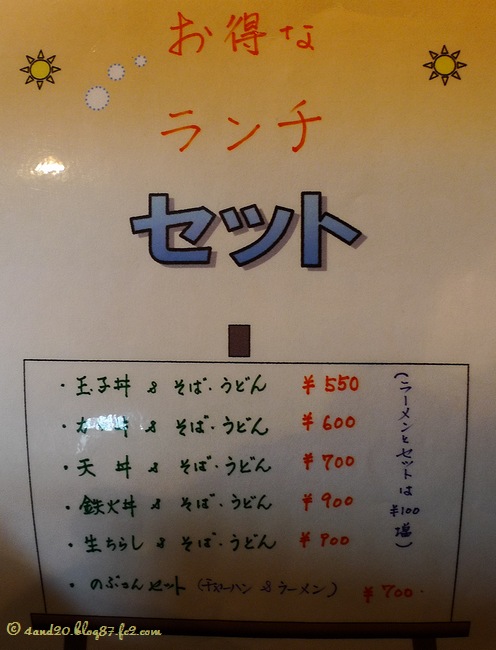 お得な
ランチ
セット
・玉子丼 & そば・うどん ¥550
丼 & そば・うどん ¥600
・天丼 & そば・うどん ¥700
・鉄火丼 & そば・うどん ¥900
・生ちらし & そば・うどん ¥900
・のぶさんセット (チャーハン & ラーメン) ¥700
(ラーメンとセットは¥100増)
© 4and20.blog87.fc2.com